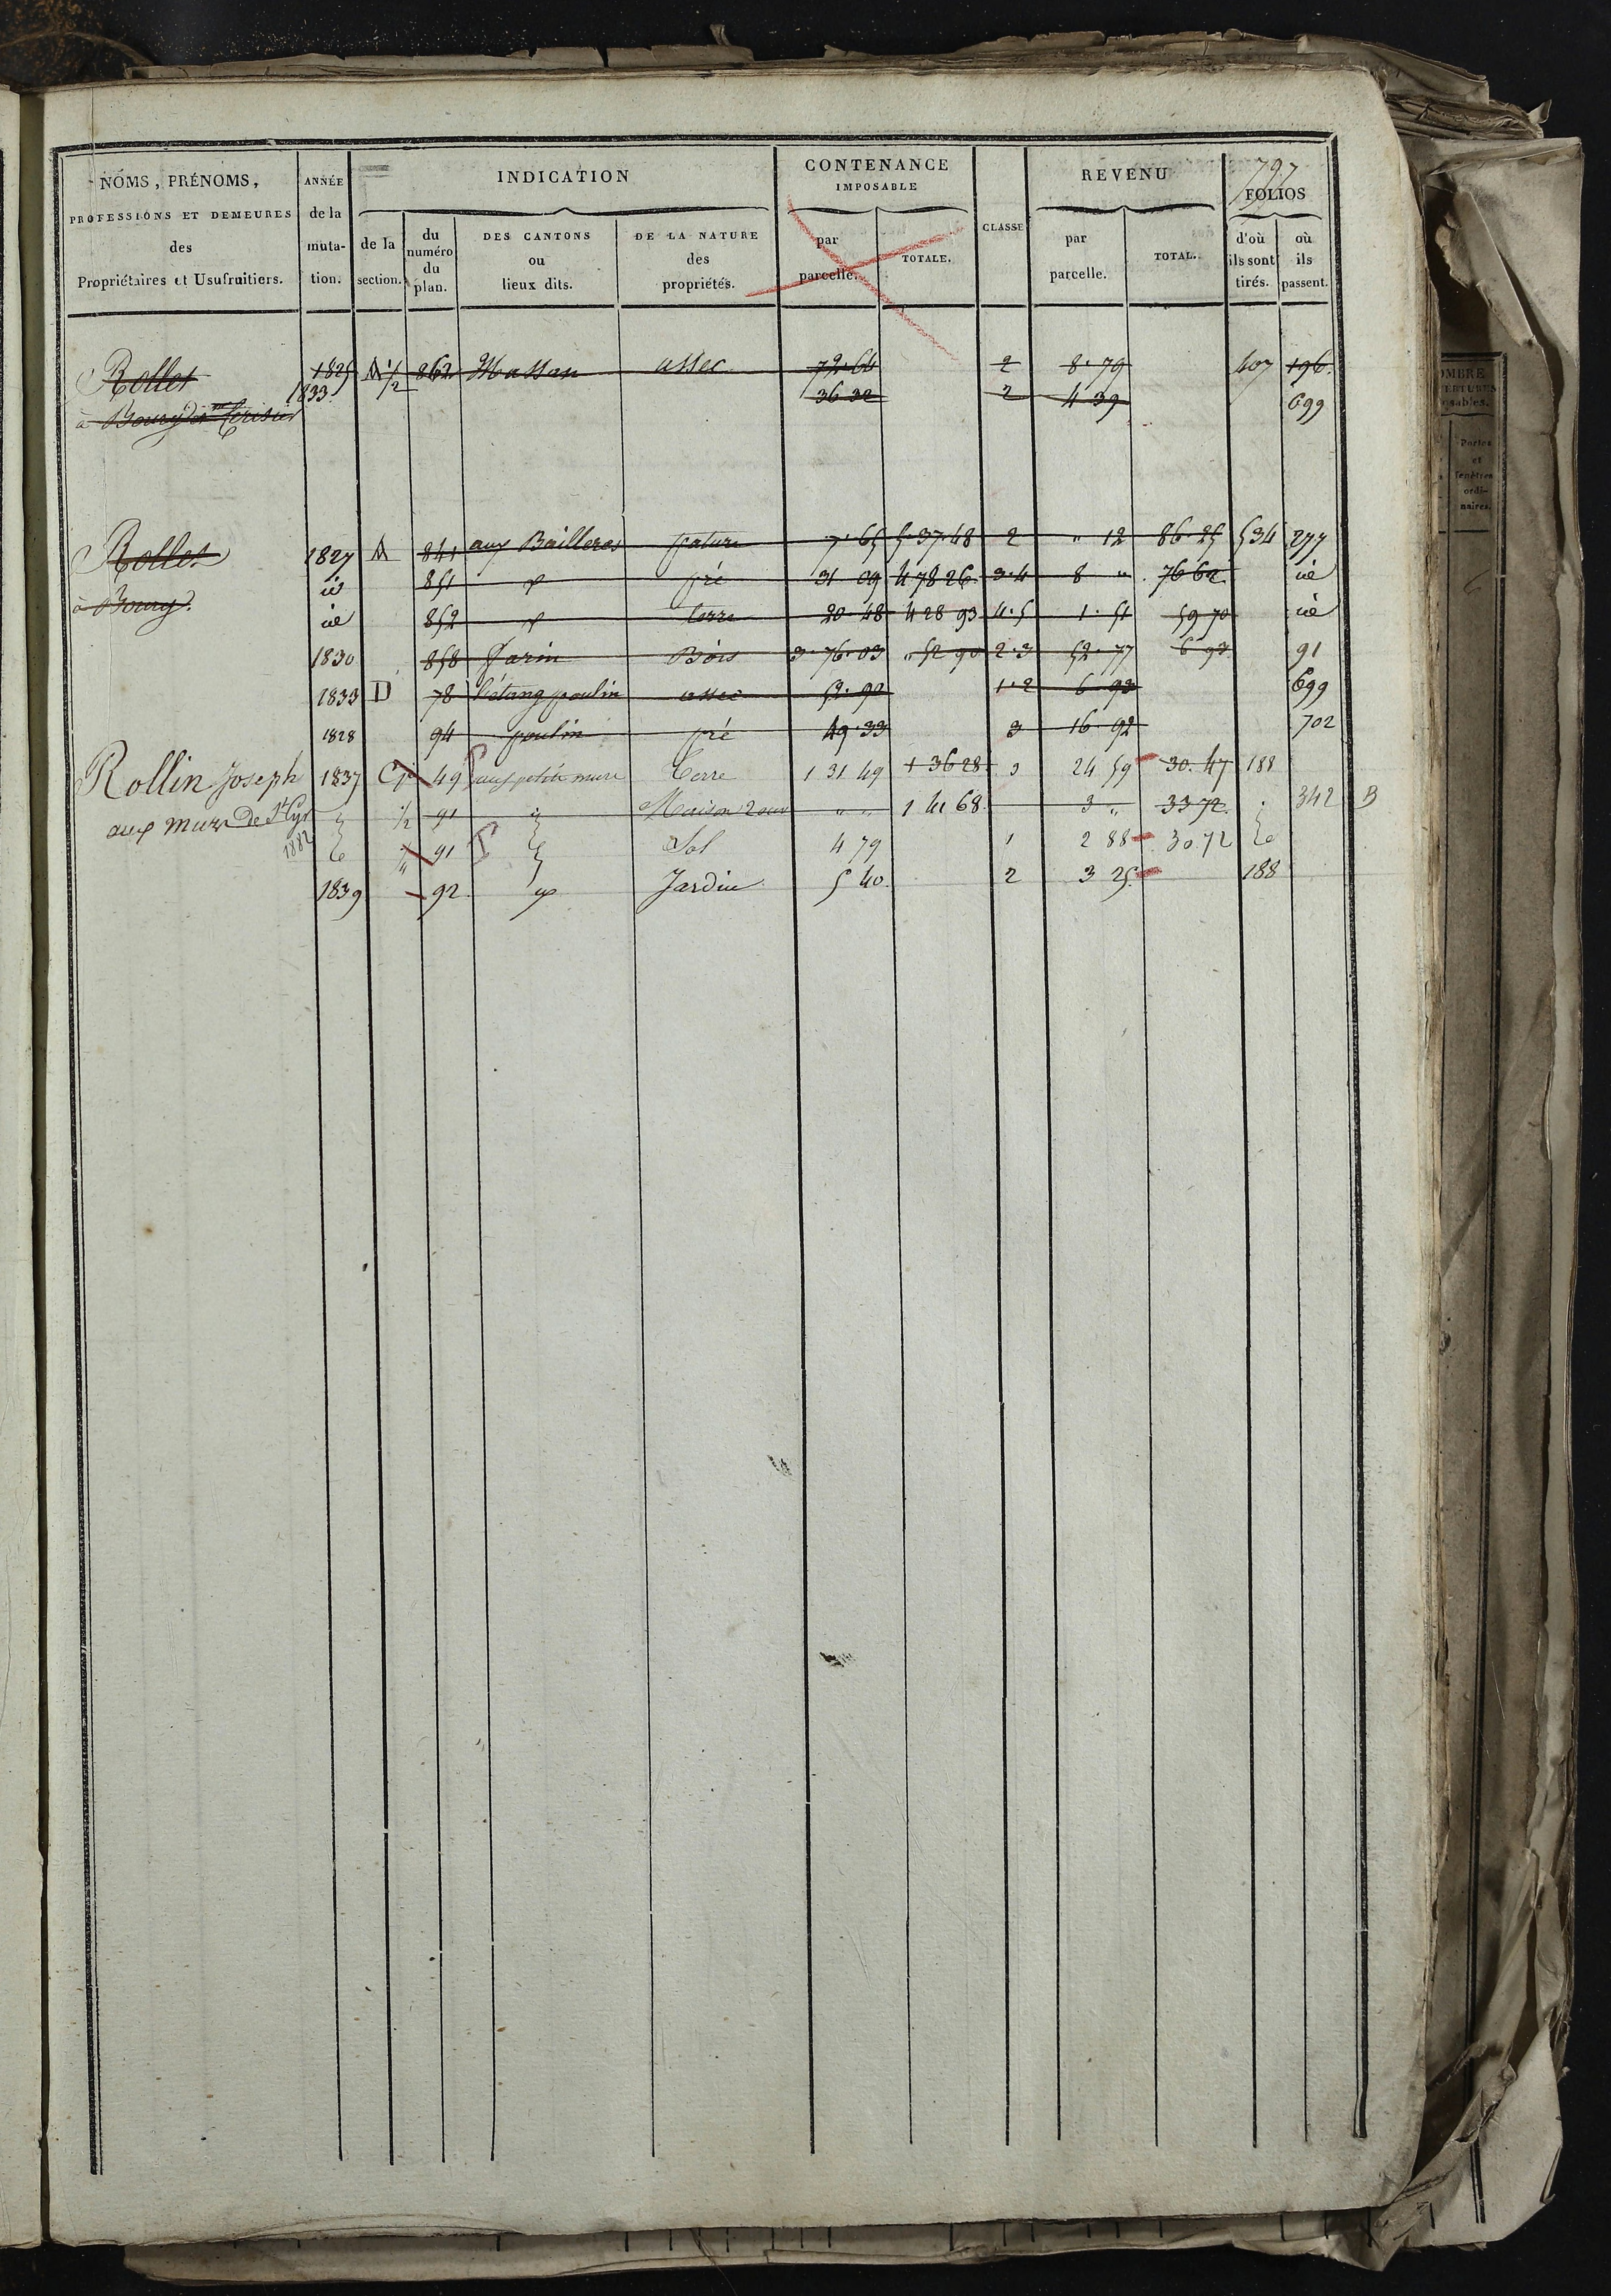 797
NOMS, PRÉNOMS, PROFESSIONS ET DEMEURES des Propriétaires et Usufruitiers.
ANNÉE de la muta- tion.
INDICATION
de la section.
du numéro du plan.
DES CANTONS ou lieux dits.
DE LA NATURE des propriétés.
CONTENANCE IMPOSABLE
par parcelle.
TOTALE.
CLASSE
REVENU
par parcelle.
TOTAL.
FOLIOS
d'où ils sont tirés.
où ils passent.
Rollet 1825 A 1/2 862 Massan assec 72.64 2 8.79 407 196
1833 36 32 2 4 39 699
à Bourg
Rollet 1827 A 841 aux Bailleres pature 7.65 5.37.48 2 " 12 86 25 534 277
id 851 pré 31 09 4 78 26 3.4 8 " 76 62 id
à Bourg.
id 852 terre 20 48 4 28 93 4.5 1.51 59 70 id
1830 858 Farin Bois 3.76.03 " 52 90 2.3 52.77 6 93 91
1833 D 78 l'étang poulin assec 52.90 1.2 6 93 699
1828 94 poulin pré 49.33 3 16 92 702
Rollin Joseph 1837 49 aux petits murs Terre 1 31 49 1 36 28 3 24 59 30.47 188
aux murs De St Cyr 1/2 91 Maison " " 1 41 68 3 " 33 72 342 B
1882 91 Sol 4 79 1 2 88 30 72
1839 92 Jardin 5 40 2 3 25 188
OMBRE
VERTURES
osables.
Portes
et
fenêtres
ordi-
naires.